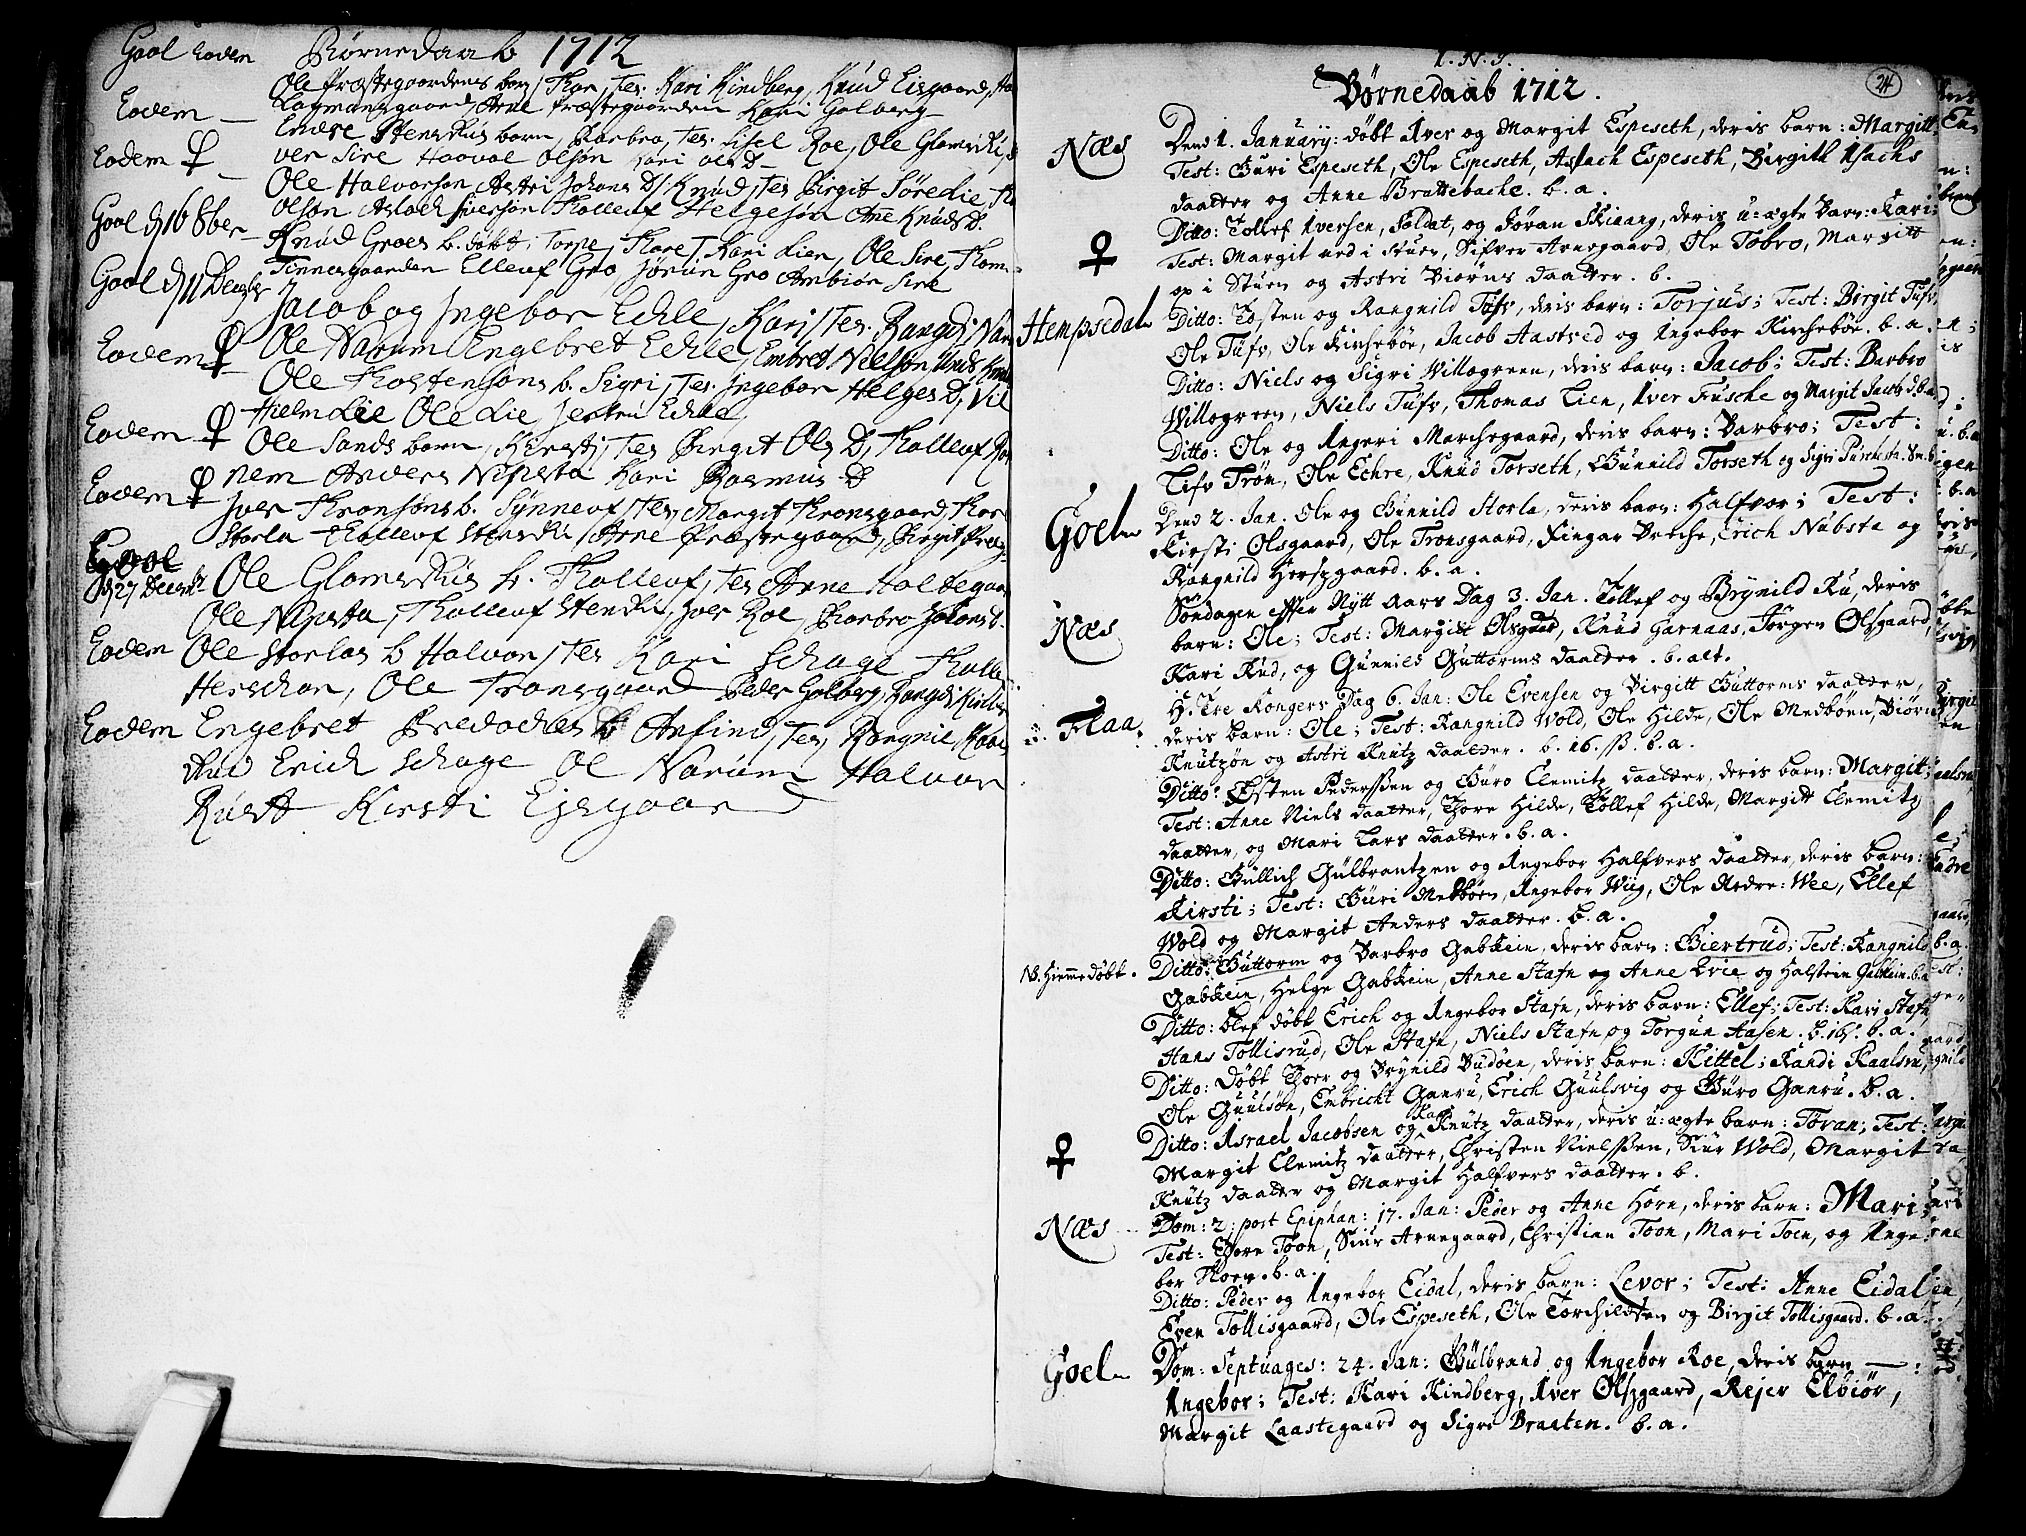 Gaal Eodem Børnedaab 1712
Ole Præstegaardens barn, Thor, Tes. Kari Kindberg, Knud Eisgaard,
Eodem Lagmansgaard, Arne Præstegaarden Kari Golberg
Endre Stensruds barn, Barbro, Tes. Sisel Roe, Ole
Eodem ♀ ver Sire Haavol Olsøn Kari
Ole Halvorsøn Astri Johans D. Knud, Tes Birgit Søredie
Gaal d. 16 8ber Olsøn Aslach Iversøn Tolleuf Helgesøn Ane Knuds D.
Knud Groes b. døbt, Torpe, Thore T. Kari Lien, Ole Sire, Thom
Gaal d. 11 Decembr Tinnersgaarden Elleuf Gro, Jørun Gro Ambiør Sire
Jacob og Ingebor Eckle, Kari, Tes. Rangdi
Eodem ♀ Ole Narum Engebret Eckle, Embret Nielsøn
Ole Thostensøns b. Sigri, Tes. Ingebor Helges D,
Eodem ♀ Hielm Lie Ole Lie Eckle
Ole Sands barn, Kirsti, Tes Birgit Ols D, Tholleuf
Eodem ♀ nem Anders Nipsta Kari Rasmus D
Iver Thronsøns b. Synneuf, Tes Margit Thronsgaard Thor
Storla Tholleuf Stensrud, Arne Præstegaard, Birgit
Gaal
d 27 Decembr Ole Glomsruds b. Tholleuf, Tes Anne Haldegaar
Ole Nipsta, Tholleuf Stenru, Iver Roe, Barbro
Eodem Ole Storlas b Halvor, Tes Kari Schage Tholle
Herschon, Ole Tronsgaard Peder Golberg, Rangdi
Eodem Engebret b Anfind, Tes, Rangnil
Rud Erich Schage Ol Narum Halvor
Rust Kirsti Eisgaard
I. N. J.
24
Børnedaab 1712.
Næs Dend 1. January: døbt Iver og Margit Espeseth, deris barn: Margitt
Test: Guri Espeseth, Ole Espeseth, Aslach Espeseth, Birgith Isachs
daatter og Anne Brattebache. b. a.
♀ Ditto: Tollef Iversen, Soldat, og Jøran Skinang, deris u: ægte Barn: Kari;
Test: Margit ned i Stuen, Sifver Arnegaard, Ole Tobro, Margitt
op i Stuen og Astri Biørns daatter. b.
Hempsedal Ditto: Tosten og Rangnild Tufv, deris barn: Torjus; Test: Birgit Tufv
Ole Tufv, Ole Kirchebøe, Jacob Aastved og Ingebor Kirchebøe. b. a.
Ditto: Niels og Sigri Willogreen, deris barn: Jacob; Test: Barbro
Willogreen, Niels Tufv, Thomas Lien, Iver Fusche og Margit Jacobs D. b. a
Ditto: Ole og Ingeri Marchegaard, deris barn: Barbro; Test:
Lifv Trøn, Ole Echre, Knud Torseth, Gunnild Torseth og Sigri
Goel Dend 2. Jan. Ole og Gunnild Storla, deris barn: Halfvor; Test:
Kirsti Olsgaard, Ole Tronsgaard, Fingar Breche, Erich Nubsta og
Rangnild Hersgaard. b. a.
Næs Søndagen effter Nytt Aars Dag 3. Jan. Tollef og Brynild Ru, deris
barn: Ole; Test: Margitt Olsgaad, Knud Garnaas, Jørgen Olsgaard,
Kari Rud, og Gunnild Guttorms daatter. b. alt.
Flaa. H. Tre Kongers Dag 6. Jan: Ole Evensen og Birgitt Guttorms daatter,
deris barn: Ole; Test: Rangnild Wold, Ole Hilde, Ole Medbøen, Biørn
Knutzøn og Astri Knutz daatter. b. 16. ß. b. a.
Ditto: Østen Pederssen og Guro Clemitz daatter, deris barn: Margit;
Test: Anne Niels daatter, Thore Hilde, Tollef Hilde, Margitt Clemitz
daatter, og Mari Lars daatter. b. a.
Ditto: Gullich Gulbrantzen og Ingebor Halfvers daatter, deris barn:
Kirsti; Test: Guri Medbøen, Ingebor Wiig, Ole Nedre: Wee, Ellef
Wold og Margit Anders daatter. b. a.
NB. Hiemmedøbt. Ditto: Guttorm og Barbro Gabkein, deris barn: Giertrud; Test: Rangnild
Gabkein, Helge Gabkein, Anne Stafn og Anne Evie og Halstein Gabkein. b. a
Ditto: blef døbt Erich og Ingebor Stafn, deris barn: Ellef; Test: Kari Stafn
Hans Tollisrud, Ole Stafn, Niels Stafn og Torgun Aasen. b. 16ß. b. a.
Ditto: døbt Thoer og Brynild Budøen, deris barn: Kittel; Randi Kaalsru,
Ole Guulsøn, Embricht Ganru, Erich Guulsvig og Guro Ganru. b. a.
♀ Ditto: Asrael Jacobsen og Kari Knutz daatter, deris u: ægte barn: Tøran; Test:
Margit Clemitz daatter, Christen Nielssen, Siur Wold, Margit
Knutz daatter og Margit Halfvers daatter. b.
Næs Dom: 2. post Epiphan: 17. Jan: Peder og Anne Horn, deris barn: Mari;
Test: Thore Toon, Siur Arnegaard, Christian Toon, Mari Toen, og Inge
bor Thoen. b. a.
Ditto: Peder og Ingebor Eidal, deris barn: Levor; Test: Anne Eidal
Even Tollisgaard, Ole Espeseth, Ole Torchildsen og Birgit Tollisgaard. b. a.
Goel Dom: Septuages: 24. Jan: Gulbrand og Ingebor Roe, deris barn — :
Ingebor; Test: Kari Kindberg, Iver Olsgaard, Rejer Elbiør,
Margit Laastegaard og Sigri Braaten. b. a.